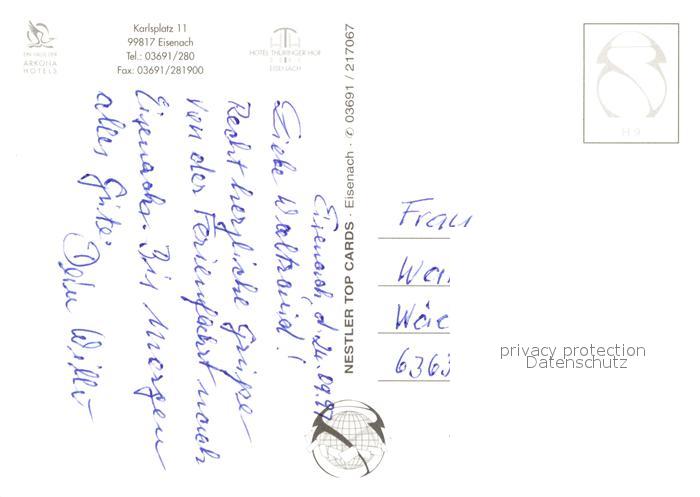 EIN HAUS DER
ARKONA
HOTELS
Karlsplatz 11
99817 Eisenach
Tel.: 03691/280
Fax: 03691/281900
HOTEL THÜRINGER HOF
EISENACH
Eisenach, d. 24.09.97
Liebe Waltraud!
Recht herzliche Grüße
von der Ferienfahrt nach
Eisenach. Bis Morgen
alles Gute.
Dein Willi
NESTLER TOP CARDS · Eisenach · ✆ 03691 / 217067
H 9
Frau
Wal
Weie
6363
privacy protection
Datenschutz